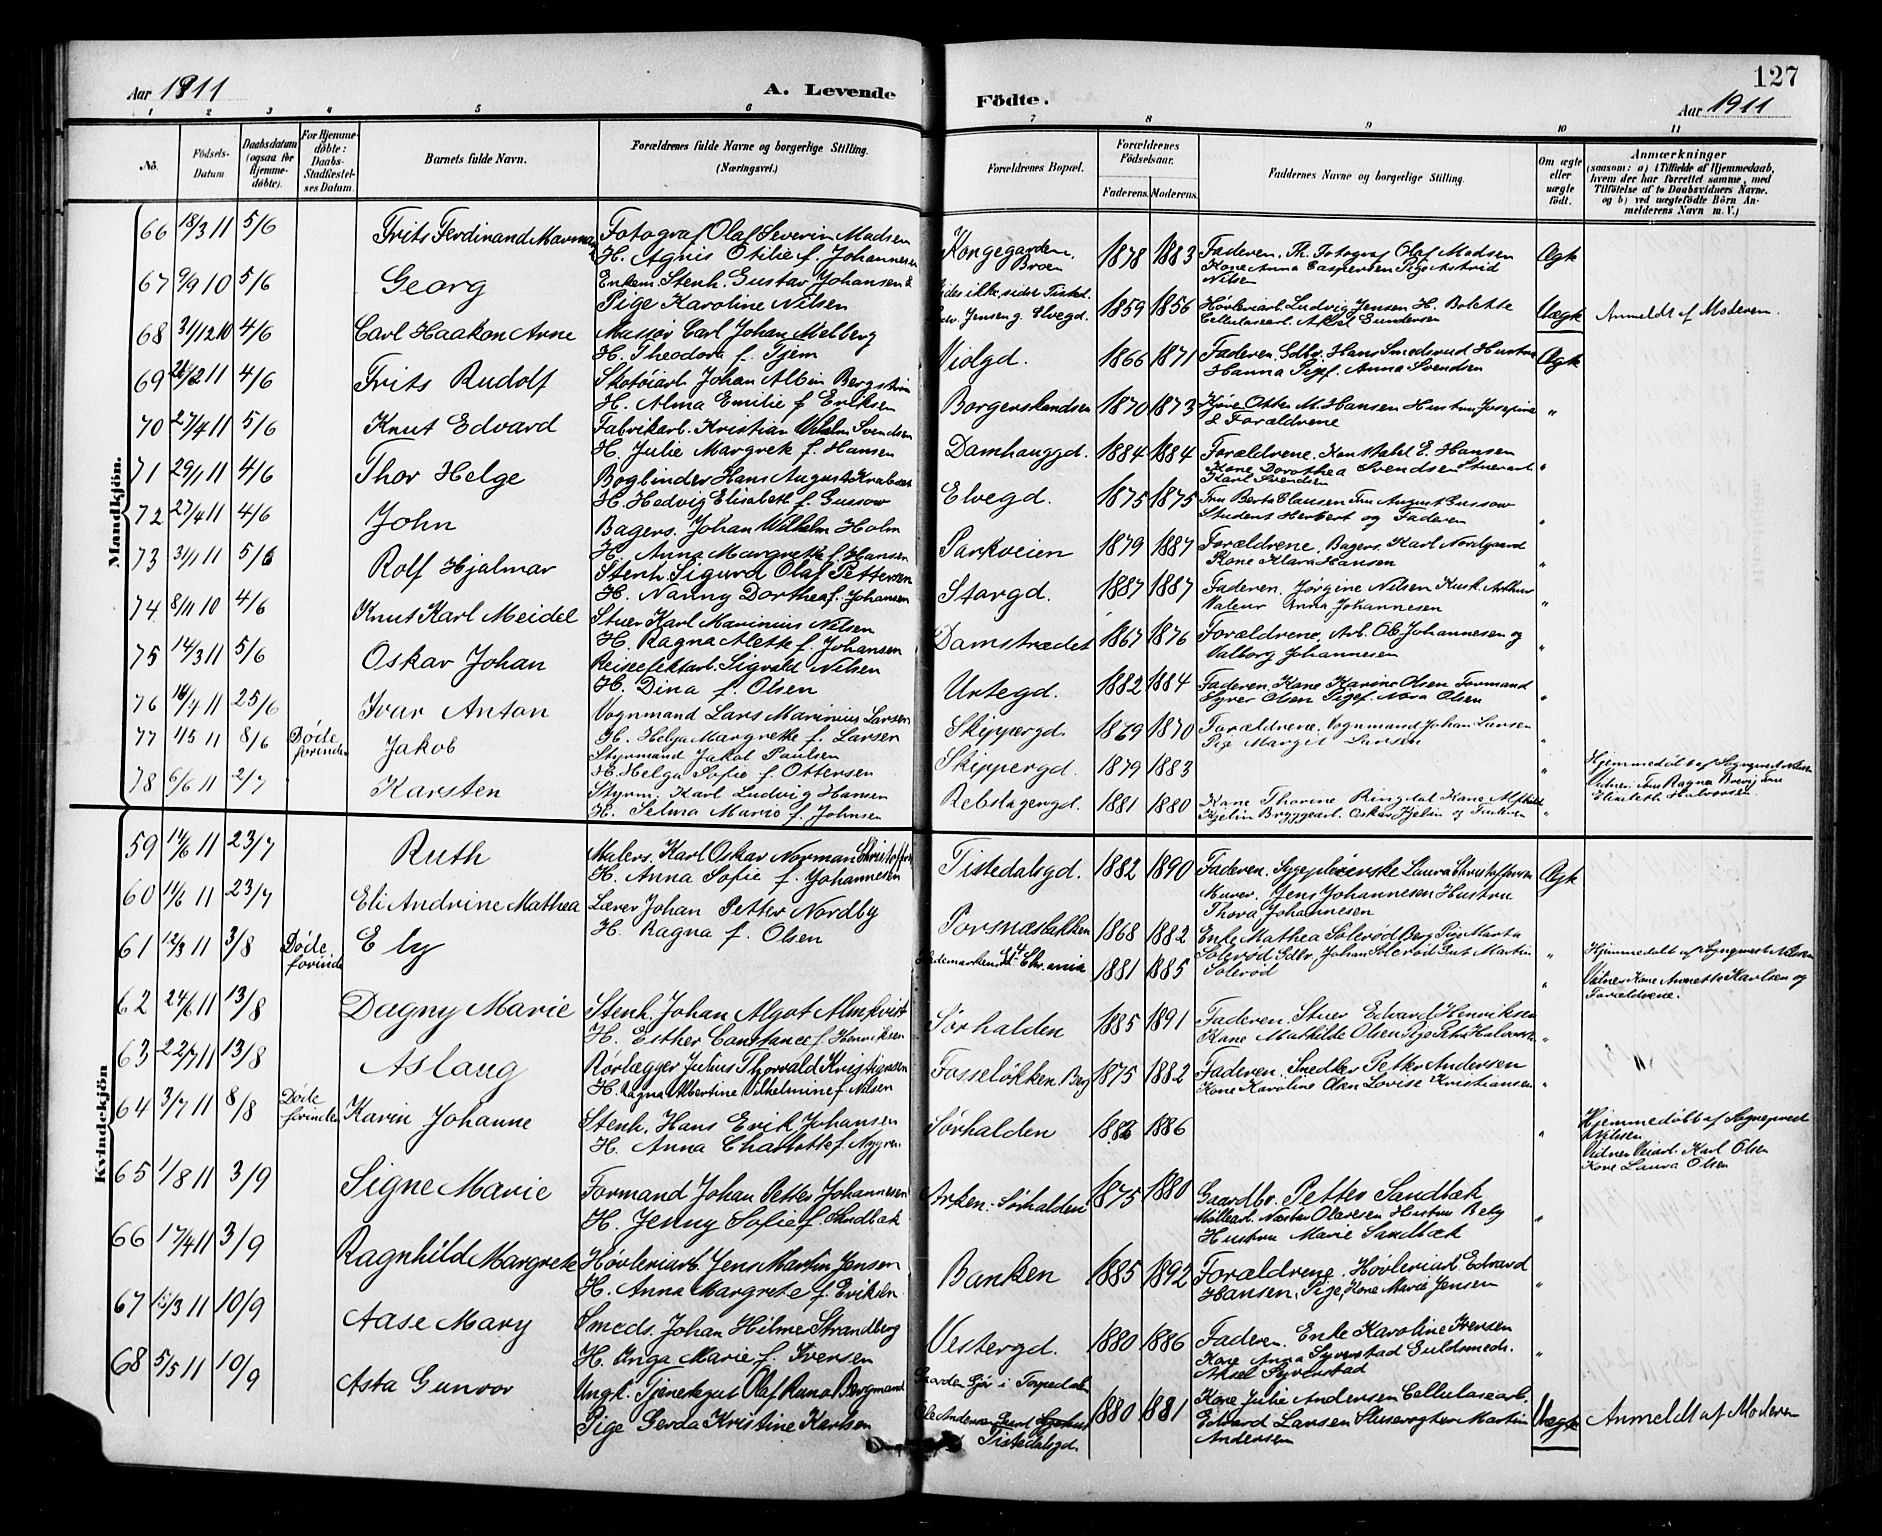 Aar 1911
A. Levende
Födte.
127
Aar 1911
1 2 3 4 5 6 7 8 9 10 11
No.
Födsels-Datum.
Daabsdatum (ogsaa for Hjemme-döbte).
For Hjemme-döbte: Daabs-Stadfæstel-ses Datum.
Barnets fulde Navn.
Forældrenes fulde Navne og borgerlige Stilling. (Næringsvei.)
Forældrenes Bopæl.
Forældrenes Födselsaar.
Faderens. Moderens.
Faddernes Navne og borgerlige Stilling.
Om ægte eller uægte födt.
Anmærkninger
(saasom: a) i Tilfælde af Hjemmedaab, hvem der har forrettet samme, med Tilföielse af to Daabsvidners Navne. og b) ved uægtefödte Börn An-melderens Navn m. V.)
Mandkjön.
66 18/3 11 5/6 Frits Ferdinand Fotograf Olaf Severin Madsen
H. Agnes Otilie f. Johannesen
Kongegarden, Broen 1878 1883 Faderen, Th. Fotograf Olaf Madsen
Kone Anna Caspersen Pige Astrid
Nilsen
Ægte
67 9/9 10 5/6 Georg Enkem. Stenh. Gustav Johansen &
Pige Karoline Nilsen
Jensen g. Elvegd. 1859 1856 Høvleriarb. Ludvig Jensen H. Bolette
Cellulosearb. Aksel Gundersen
Uægte Anmeldt af Moderen.
68 31/12 10 4/6 Carl Haakon Arne Massør Carl Johan Melberg
H. Theodora f. Tjem
Violgd. 1866 1871 Faderen. Gdbr. Hans Smedsrud Hustru
Hanna Pigef. Anna Svendsen
Ægte
69 26/2 11 4/6 Frits Rudolf Skotøiarb. Johan Albin Bergstrøm
H. Alma Emilie f. Eriksen
Borgerskandsen 1870 1873 Otto M. Hansen Hustru Josefine
& Forældrene "
70 27/4 11 5/6 Knut Edvard Fabrikarb. Kristian Wilhelm Svendsen
H. Julie Margrete f. Hansen
Damhauggd. 1884 1884 Forældrene. Konstabel E. Hansen
Kone Dorothea Svendsen Stuerarb.
Karl Svendsen "
71 29/1 11 4/6 Thor Helge Bogbinder Hans August
H. Hedvig Elisabeth f. Gussow
Elvegd. 1875 1875 Fru Berta Clausen Fru August Gussow
Student Herbert og Faderen "
72 27/4 11 4/6 John Bagers. Johan Wilhelm Holm
H. Anna Margrethe f. Hansen
Parkveien 1879 1887 Forældrene. Bagers. Karl Nordgaard
Kone Klara Hansen "
73 31/1 11 5/6 Rolf Hjalmar Stenh. Sigurd Olaf Pettersen
H. Nanny Dorthea f. Johansen
Storgd. 1887 1887 Faderen. Jørgine Nilsen Kusk. Arthur
Valeur Anna Johannesen "
74 8/11 10 4/6 Knut Karl Meidel Stuer Karl Marinius Nilsen
H. Ragna Alette f. Johansen
Damstrædet 1867 1876 Forældrene, Arb. Ole Johannesen og
Valborg Johannesen "
75 14/3 11 5/6 Oskar Johan Reiseefektarb. Sigvald Nilsen
H. Dina f. Olsen
Urtegd. 1882 1884 Faderen. Kone Karine Olsen Formand
Syver Olsen Pigef. Nora Olsen "
76 16/4 11 25/6 Ivar Anton Vognmand Lars Marinius Larsen
H. Helga Margrethe f. Larsen
Skippergd. 1869 1870 Forældrene. Vognmand Johan Larsen
Pige Margit Larsen "
77 1/5 11 8/6 Døde forinden Jakob Styrmand Jakob Paulsen
H. Helga Sofie f. Ottersen
Skippergd. 1879 1883 " Hjemmedøbt af Sogneprest Nilsen
Vidner: Fru Ragna Brevig Fru
Elisabeth Halvorsen
78 6/6 11 2/7 Karsten Styrm. Karl Ludvig Hansen
H. Selma Marie f. Johnsen
Rebslagergd. 1881 1880 Kone Thorine Ringdal Kone Alfhild
Kjelin Bryggearb. Oskar Kjelin og Faderen "
Kvindekjön
59 14/6 11 23/7 Ruth Malers. Karl Oskar Norman Christoffersen
H. Anna Sofie f. Johannesen
Tistedalsgd. 1882 1890 Faderen. Sygepleierske Laura Christoffersen
Murer. Jens Johannesen Hustru
Thora Johannesen
Ægte
60 11/6 11 23/7 Eli Andrine Mathea Lærer Johan Petter Nordby
H. Ragna f. Olsen
Porsnæsbakken 1868 1882 Enke Mathea Solerød Berg Pige Marta
Solerød Gdbr. Johan Solerød Gut Martin
Solerød "
61 12/3 11 3/8 Døde forinden Elly
1881 1885 " Hjemmedøbt af Sogneprest Nilsen
Vidner Kone Annette Karlsen og
Forældrene.
62 24/6 11 13/8 Dagny Marie Stenh. Johan Algot Almkvist
H. Esther Constance f. Henriksen
Sørhalden 1885 1891 Faderen. Stuer Edvard Henriksen
Kone Mathilde Olsen Pige Petra Halvorsen "
63 22/7 11 13/8 Aslaug Rørlægger Julius Thorvald Kristiansen
H. Ragna Albertine Vilhelmine f. Nilsen
Fosseløkken. Berg 1875 1882 Faderen. Snedker Petter Andersen
Kone Karoline Olsen Lovise Kristiansen "
64 3/7 11 8/8 Døde forinden Karin Johanne Stenh. Hans Erik Johansen
H. Anna Charlotte f. Nygren
Sørhalden 1882 1886 " Hjemmedøbt af Sogneprest
Nilsen
Vidner Veiarb. Karl Olsen
Kone Laura Olsen
65 1/8 11 3/9 Signe Marie Formand Johan Petter Johannesen
H. Jenny Sofie f. Sandbæk
Arken: Sørhalden 1875 1880 Gaardbr. Petter Sandbæk
Møllearb. Nestor Olavesen Hustru Beby
Hustru Marie Sandbæk "
66 17/4 11 3/9 Ragnhild Margrete Høvleriarb. Jens Martin Jensen
H. Anna Margrete f. Eriksen
Banken 1885 1892 Forældrene. Høvleriarb. Edvard
Hansen, Pige, Kone Marie Jensen "
67 15/3 11 10/9 Aase Mary Smeds. Johan Hilmer Strandberg
H. Inga Marie f. Iversen
Vestergd. 1880 1886 Faderen. Enke Karoline Iversen
Kone Anna Syverstad Guldsmeds.
Aksel Syverstad "
68 5/5 11 10/9 Asta Gunvor Ungk. Tjenestegut Olaf Runo Bergmand
Pige Gerda Kristine Karlsen
Gaarden Gjør i Torpedalen
Ole Andersen
Tistedalsgd. 1880 1881 Kone Julie Andersen Cellulosearb.
Edvard Larsen Slusevogter Martin
Andersen
Uægte Anmeldt af Moderen